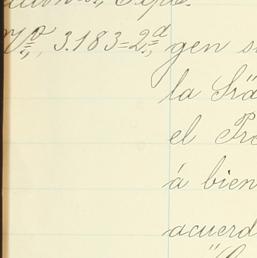 Vº, 3.183=2ª, gen s
la Srä
el Pre
á bien
acuerd